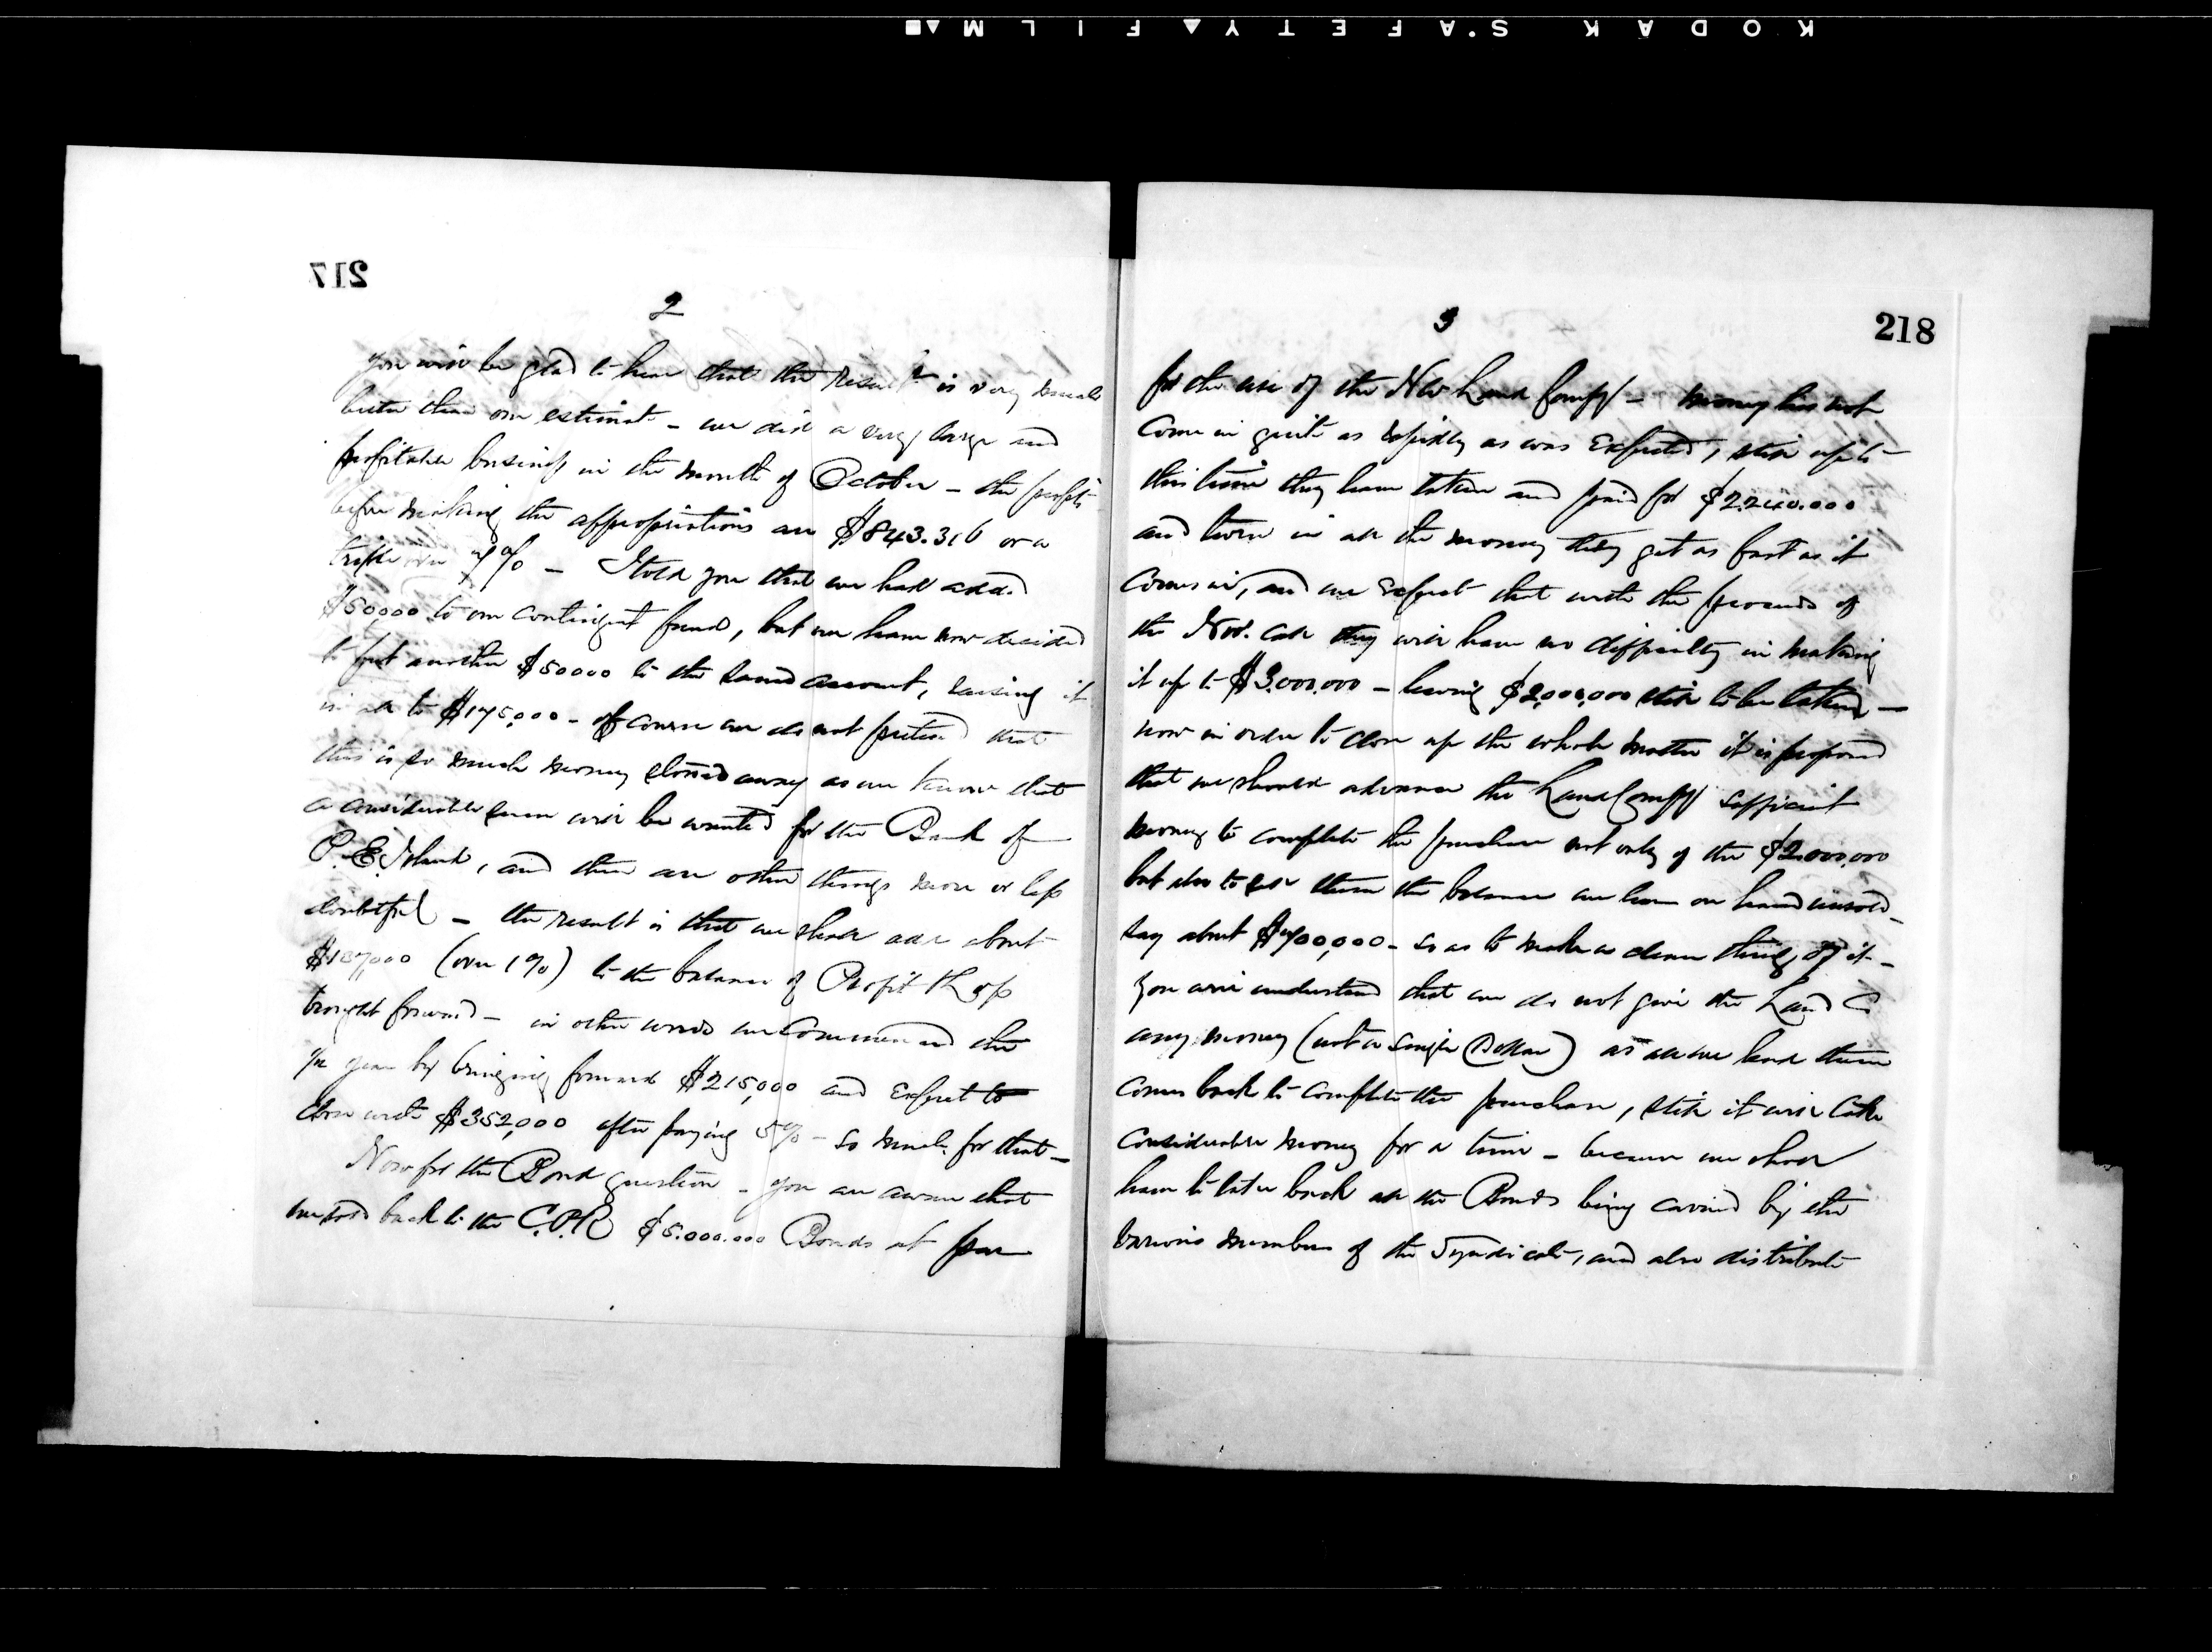 KODAK S.AFETY▲FILM▲■
217
2
you will be glad to hear that the result is very much
better than our estimate - we did a very large and
profitable business in the month of October - the profits
before making the appropriations are $843.316 or a
trifle over 7% - I told you that we had added
$50,000 to our contingent fund, but we have now decided
to put another $50000 to the same account, raising it
in all to $175,000 - of course we do not pretend that
this is so much money stored away as we know that
a considerable sum will be wanted for the Bank of
P. E. Island, and there are other things more or less
doubtful - the result is that we shall add about
$137,000 (over 1%) to the balance of Profit & Loss
brought forward - in other words we commenced the
½ year by bringing forward $215,000 and expect to
close with $352,000 after paying 5% - so much for that -
Now for the Bond question - you are aware that
we sold back to the C.P.R $5.000.000 Bonds at par
218
3
for the use of the NW Land Compy - money has not
come in quite as rapidly as was expected, still up to
this time they have taken and paid for $2.240.000
and turn in all the money they get as fast as it
comes in, and we expect that with the proceeds of
the Nov. call they will have no difficulty in making
it up to $3.000.000 - leaving $2,000,000 still to be taken -
now in order to close up the whole matter it is proposed
that we should advance the Land Compy sufficient
money to complete the purchase not only of the $2.000.000
but also to sell them the balance we have on hand unsold -
say about $700,000 - so as to make a clean thing of it -
you will understand that we do not give the Land Co
any money (not a single Dollar) as all we lend them
comes back to complete the purchase, still it will take
considerable money for a time - because we shall
have to take back all the Bonds being carried by the
various members of the Syndicate, and also distribute